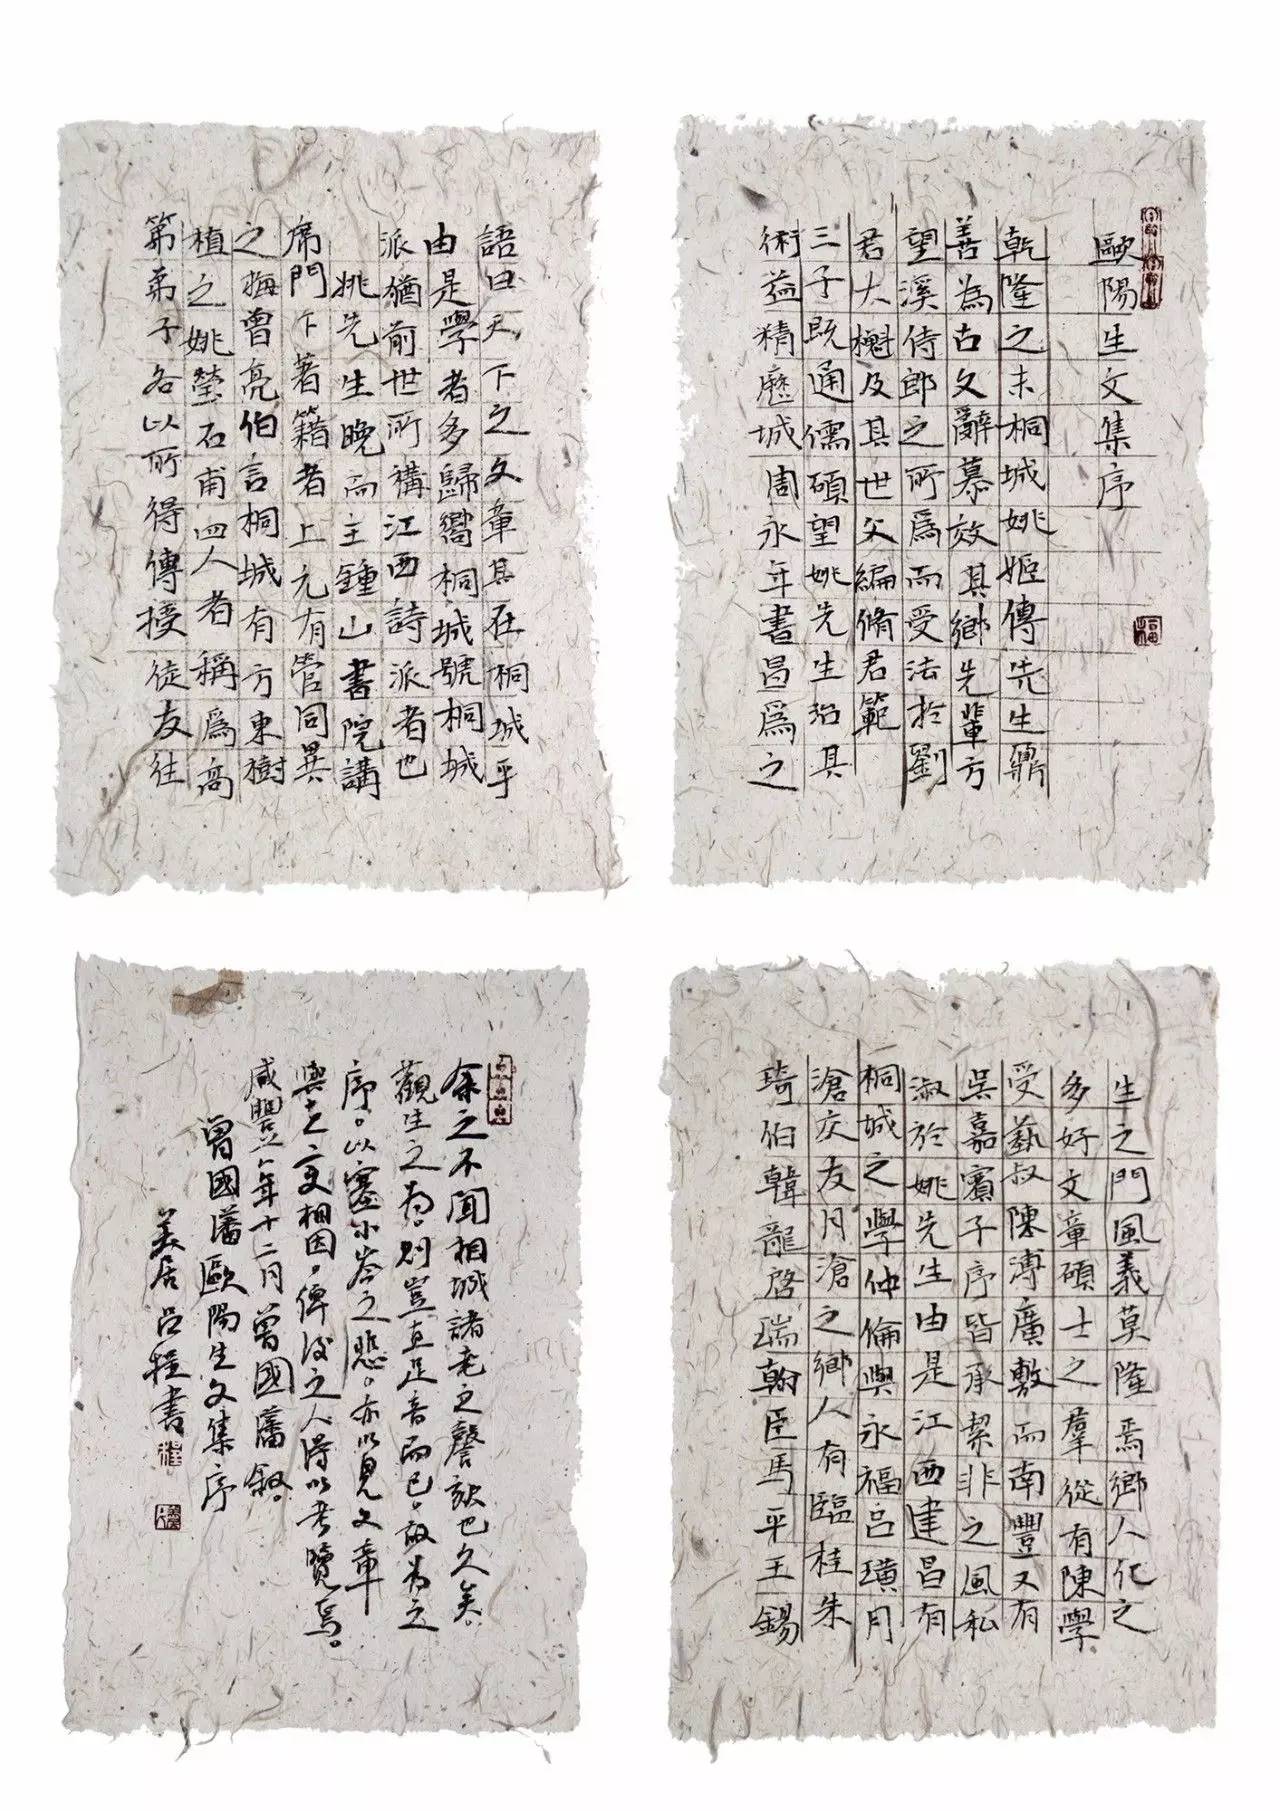 歐陽生文集序
乾隆之末桐城姚姬傳先生鼐
善為古文辭慕效其鄉先輩方
望溪侍郎之所爲而受法於劉
君大櫆及其世父編脩君範
三子既通儒碩望姚先生治其
術益精歷城周永年書昌爲之
福
語曰天下之文章其在桐城乎
由是學者多歸嚮桐城號桐城
派猶前世所稱江西詩派者也
姚先生晚而主鍾山書院講
席門下著籍者上元有管同異
之梅曾亮伯言桐城有方東樹
植之姚瑩石甫四人者稱爲高
第弟子各以所得傳授徒友往
生之門風義莫隆焉鄉人化之
多好文章碩士之羣從有陳學
受藝叔陳溥廣敷而南豐又有
吳嘉賓子序皆承絜非之風私
淑於姚先生由是江西建昌有
桐城之學仲倫與永福呂璜月
滄交友月滄之鄉人有臨桂朱
琦伯韓龍啓瑞翰臣馬平王錫
余之不聞桐城諸老之謦欬也久矣
觀生之為則豈直足音而已故為之
序以塞小岑之悲亦以見文章
與世變相因俾後之人得以考覽焉
咸豐八年十二月曾國藩敘
曾國藩歐陽生文集序
美居呂程書